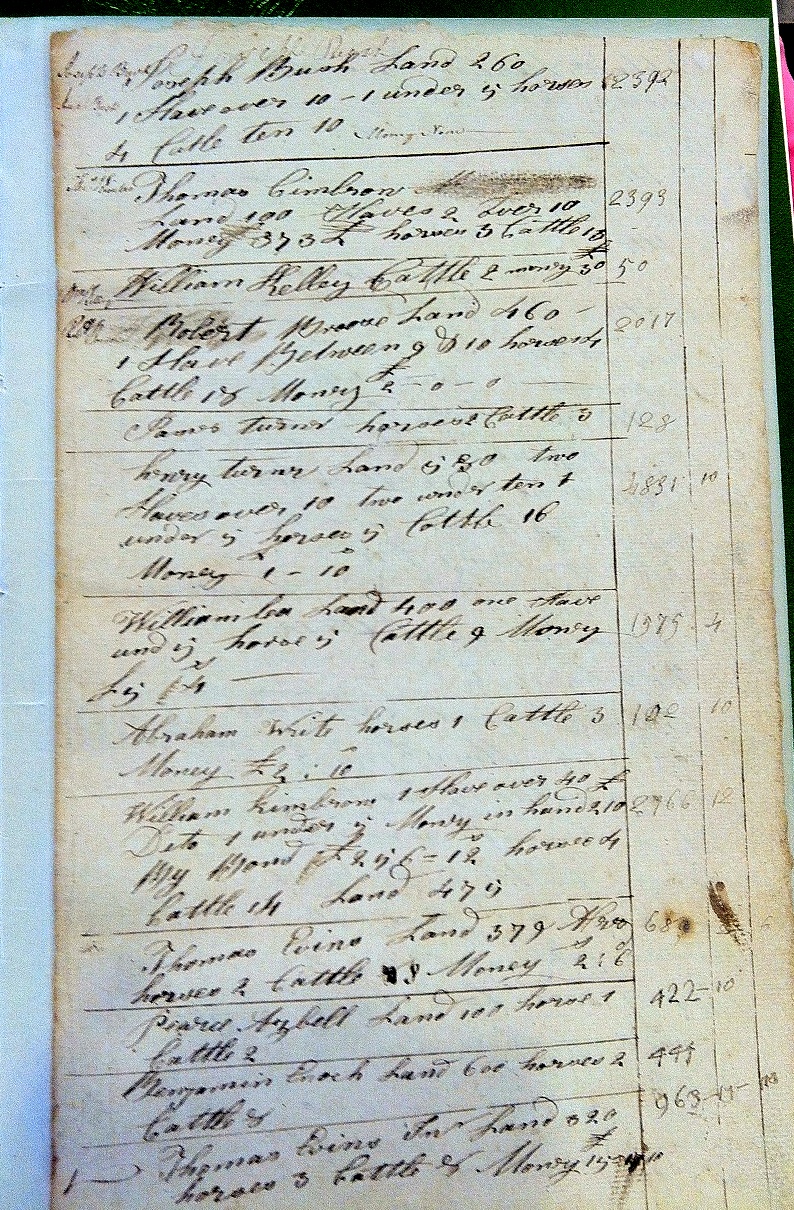 Joseph Bush Land 260
1 Slave over 10 - 1 under 5 horses 2392
4 Catle ten 10 Money None
Thomas Cimbrow
Land 100 Slaves 2 Over 10 2393
Money 373 £ horses 3 Cattle 18
William Kelley Cattle 2 money £30 50
Robert Land 460 2017
1 Slave Between 9 & 10 horses 4
Cattle 18 Money £2-0-0
James turner horses 2 Cattle 3 128
henry turner Land 530 two
slaves over 10 two under ten 1 4831 10
under 5 horses 5 Cattle 16
Money 1-10
William Lea Land 400 one slave
und 5 horse 5 Cattle 9 Money 1575 4
£4
Abraham Write horses 1 Cattle 3 10
Money £2:10
William Kimbrow 1 slave over 40 £
Dito 1 under 5 Money in hand 210 2966 12
By Bond £256-12 horses 4
Cattle 14 Land 475
Thomas Evins Land 379 68
horses 2 Cattle Money 2:6
Pearce Azbell Land 100 horse 1 422-10
Cattle 2
Benjamin Enoch Land 600 horses 2
Cattle 8 963
Thomas Evins Jnr Land 320
horses 3 Cattle 8 Money